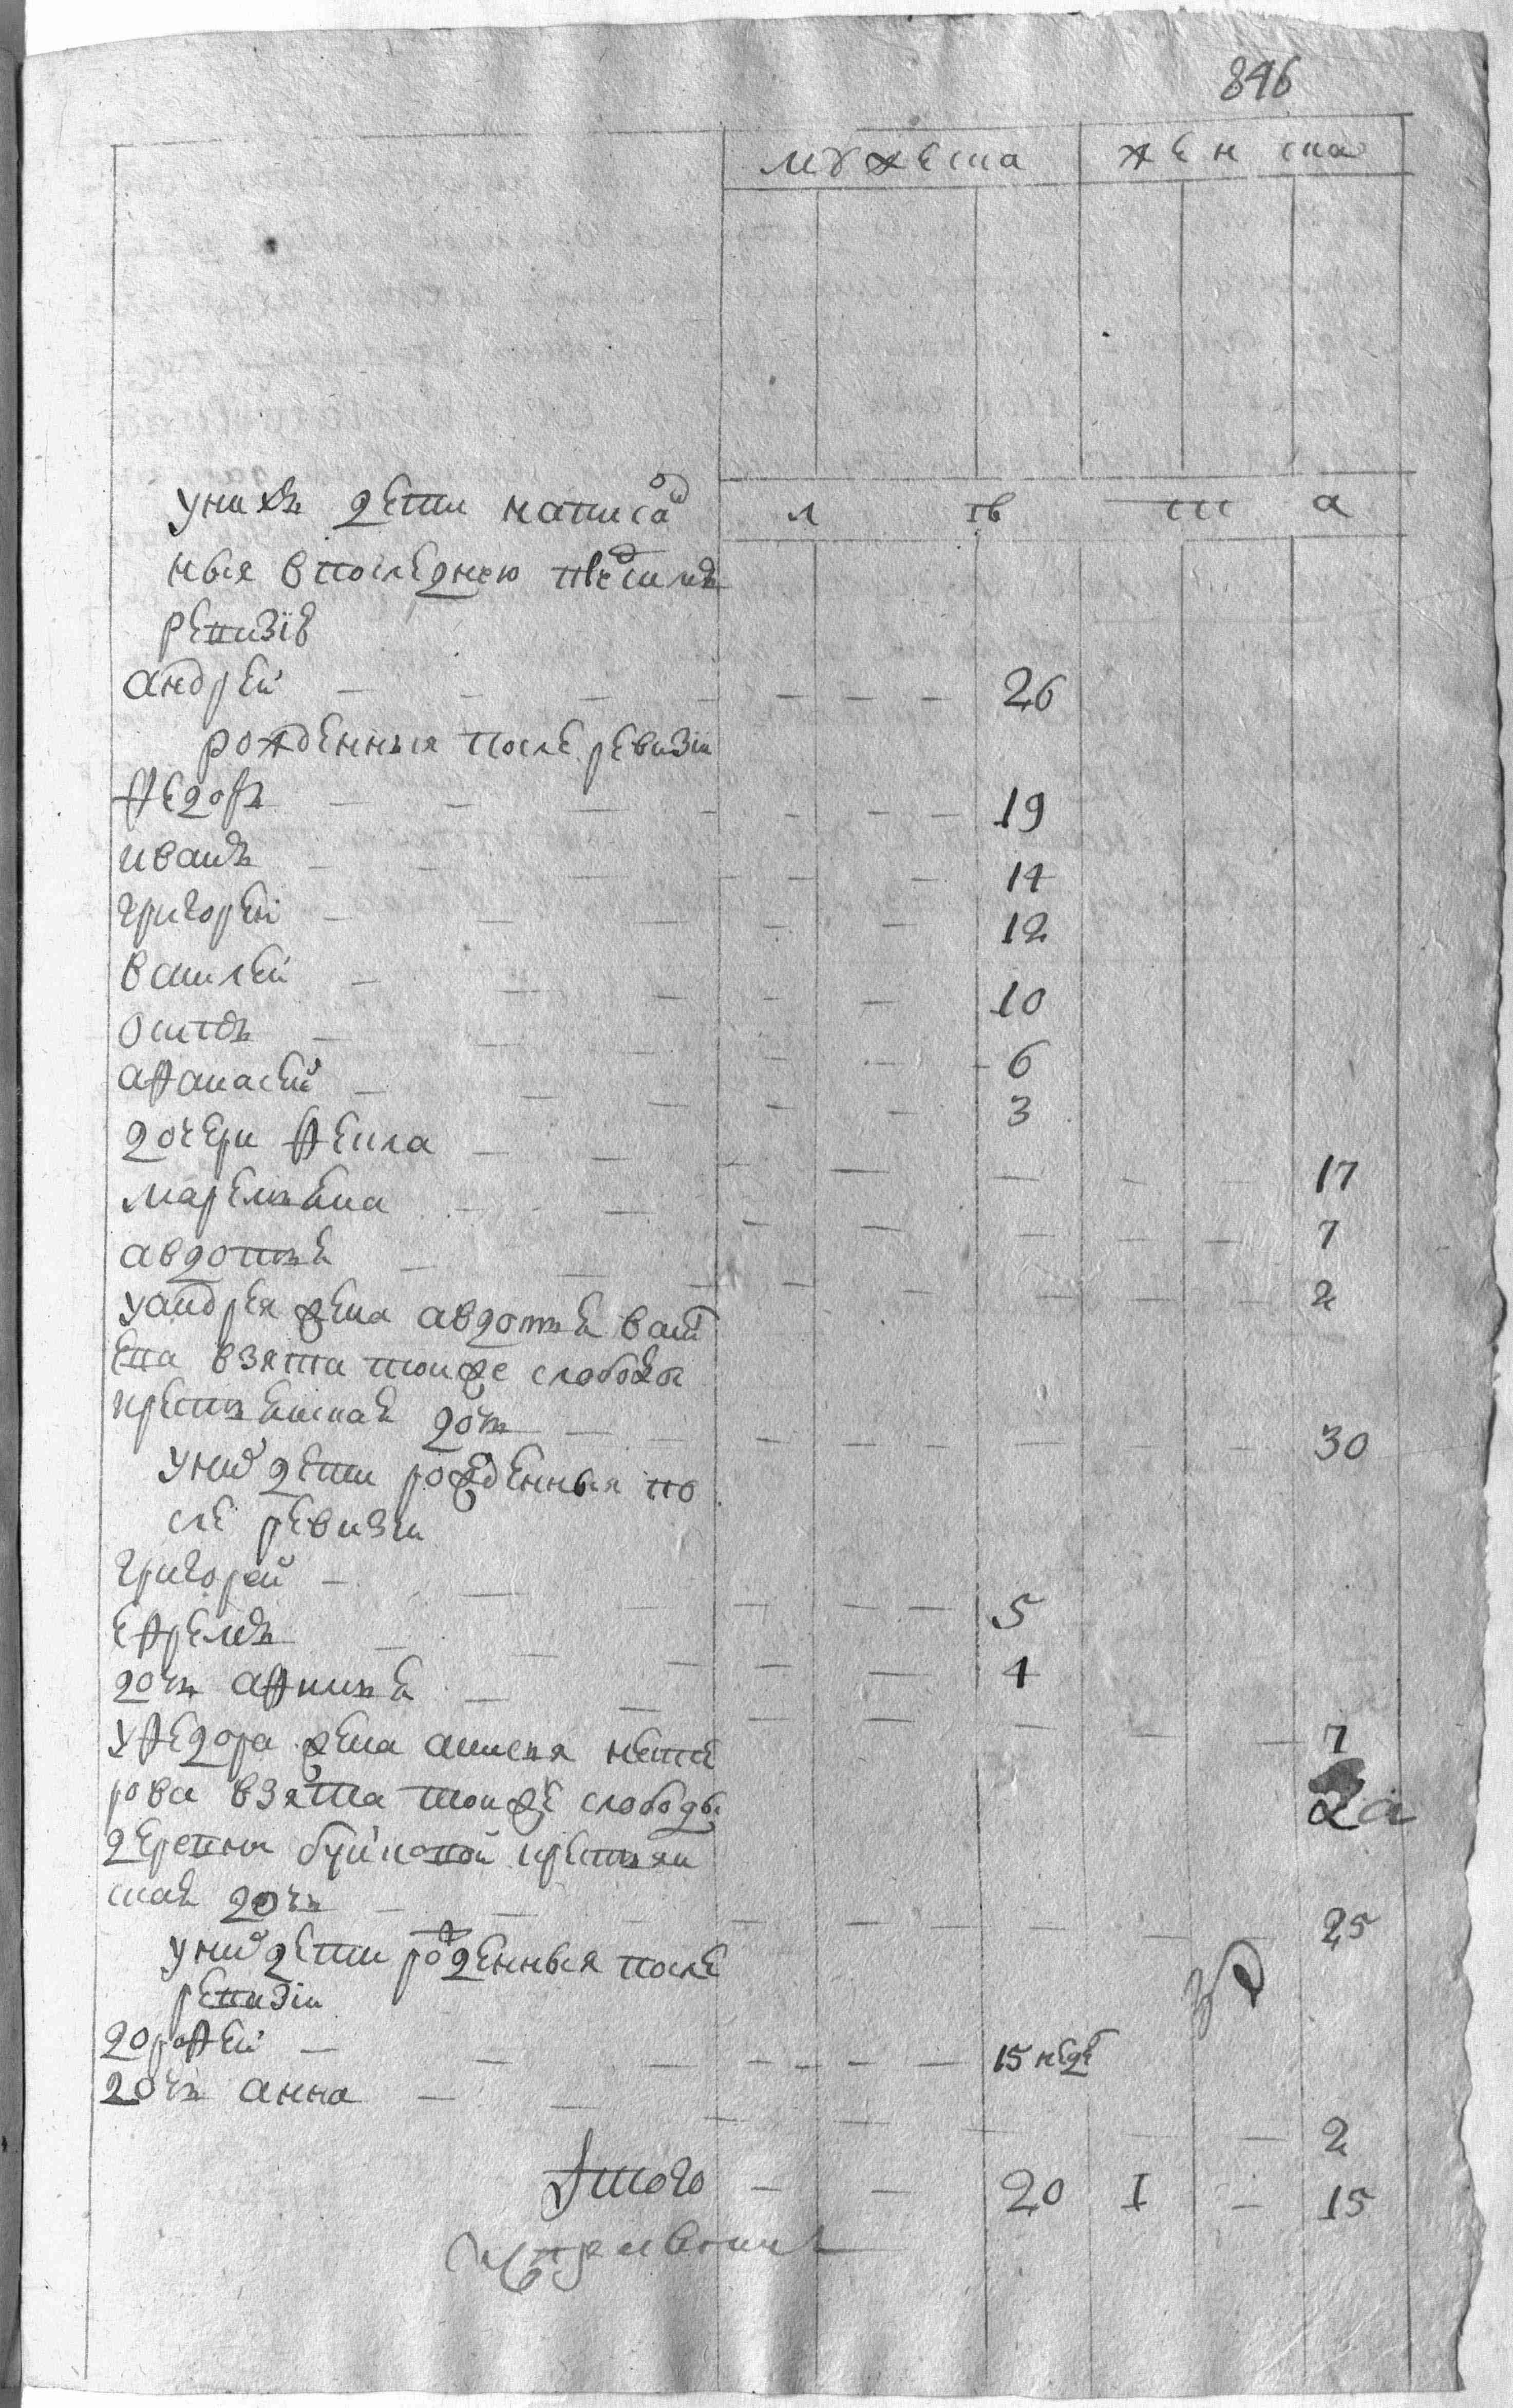 846
мужеска женска
у нихъ дети написа
ныя в последнею пред симъ
ревизiе
л тв ш а
андрей — 26
рожденныя после ревизiи
федоръ — 19
иванъ — 14
григорей — 12
василей — 10
осипъ — 6
афанасей — 3
дочери фекла — 17
маремьяна — 7
авдотья — 2
у андрея жена авдотья васи
ева взята тоиже слободы
крестьянская дочь — 30
у них дети рожденныя по
сле ревизiи
григорей — 5
ефремъ — 4
дочь афимья — 7
у федора жена аксенья
рова взята тоиже слободы 2а
деревни буйковой крестьян
ская дочь — 25
у них дети рожденныя после
ревизiи
дорофей — 15 неде
дочь анна — 2
Итого — 20 1 — 15